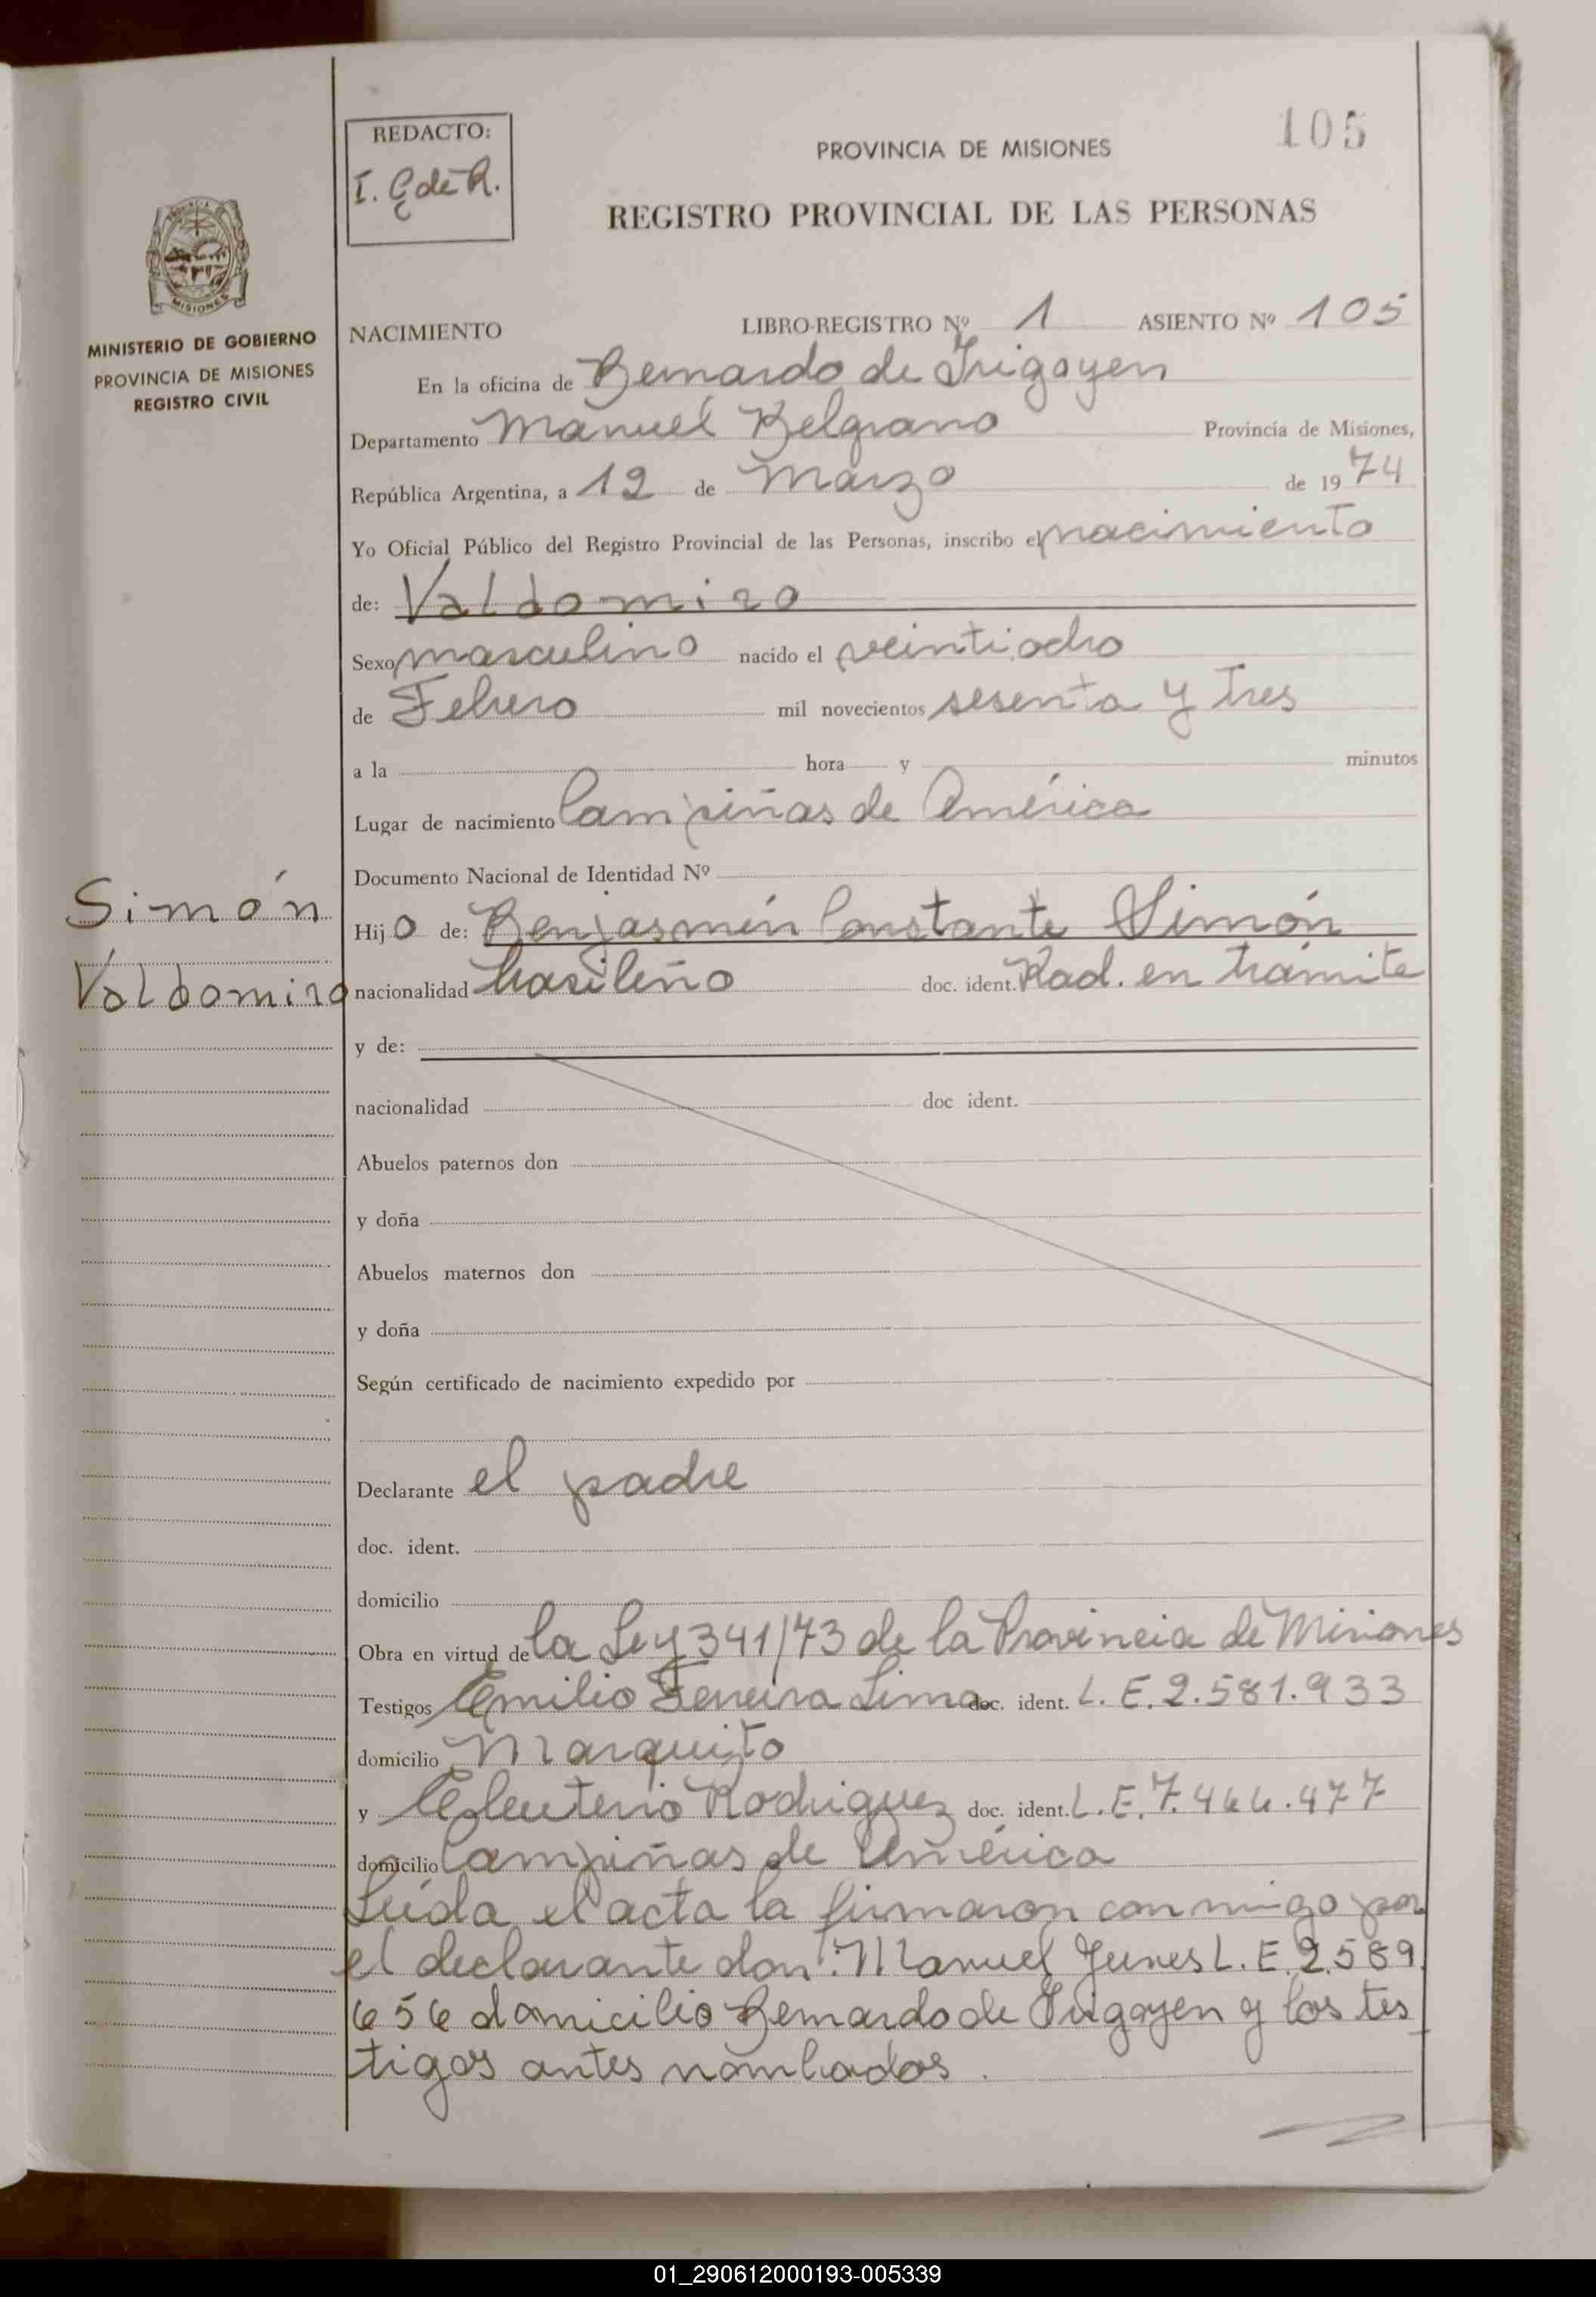 105
REDACTO:
I. G de R.
PROVINCIA DE MISIONES
REGISTRO PROVINCIAL DE LAS PERSONAS
MISIONES
MINISTERIO DE GOBIERNO
PROVINCIA DE MISIONES
REGISTRO CIVIL
NACIMIENTO LIBRO-REGISTRO Nº 1 ASIENTO Nº 105
En la oficina de Bernardo de Irigoyen
Departamento Manuel Belgrano Provincia de Misiones,
República Argentina, a 12 de Marzo de 1974
Yo Oficial Público del Registro Provincial de las Personas, inscribo el nacimiento
de: Valdomiro
Sexo masculino nacido el veintiocho
de Febrero mil novecientos sesenta y tres
a la hora y minutos
Lugar de nacimiento Campiñas de América
Documento Nacional de Identidad Nº
Simón
Valdomiro
Hijo de: Benjasmín Constante Simón
nacionalidad brasileño doc. ident. Rad. en trámite
y de:
nacionalidad doc ident.
Abuelos paternos don
y doña
Abuelos maternos don
y doña
Según certificado de nacimiento expedido por
Declarante el padre
doc. ident.
domicilio
Obra en virtud de la Ley 341/73 de la Provincia de Misiones
Testigos Emilio Ferreira Lima doc. ident. L. E. 2.581.933
domicilio Marquito
y Eleuterio Rodriguez doc. ident. L. E. 7.466.477
domicilio Campiñas de América
Leída el acta la firmaron conmigo por
el declarante don: Manuel Junes L. E. 2.589.
656 domicilio Bernardo de Irigoyen y los tes
tigos antes nombrados.
01_290612000193-005339